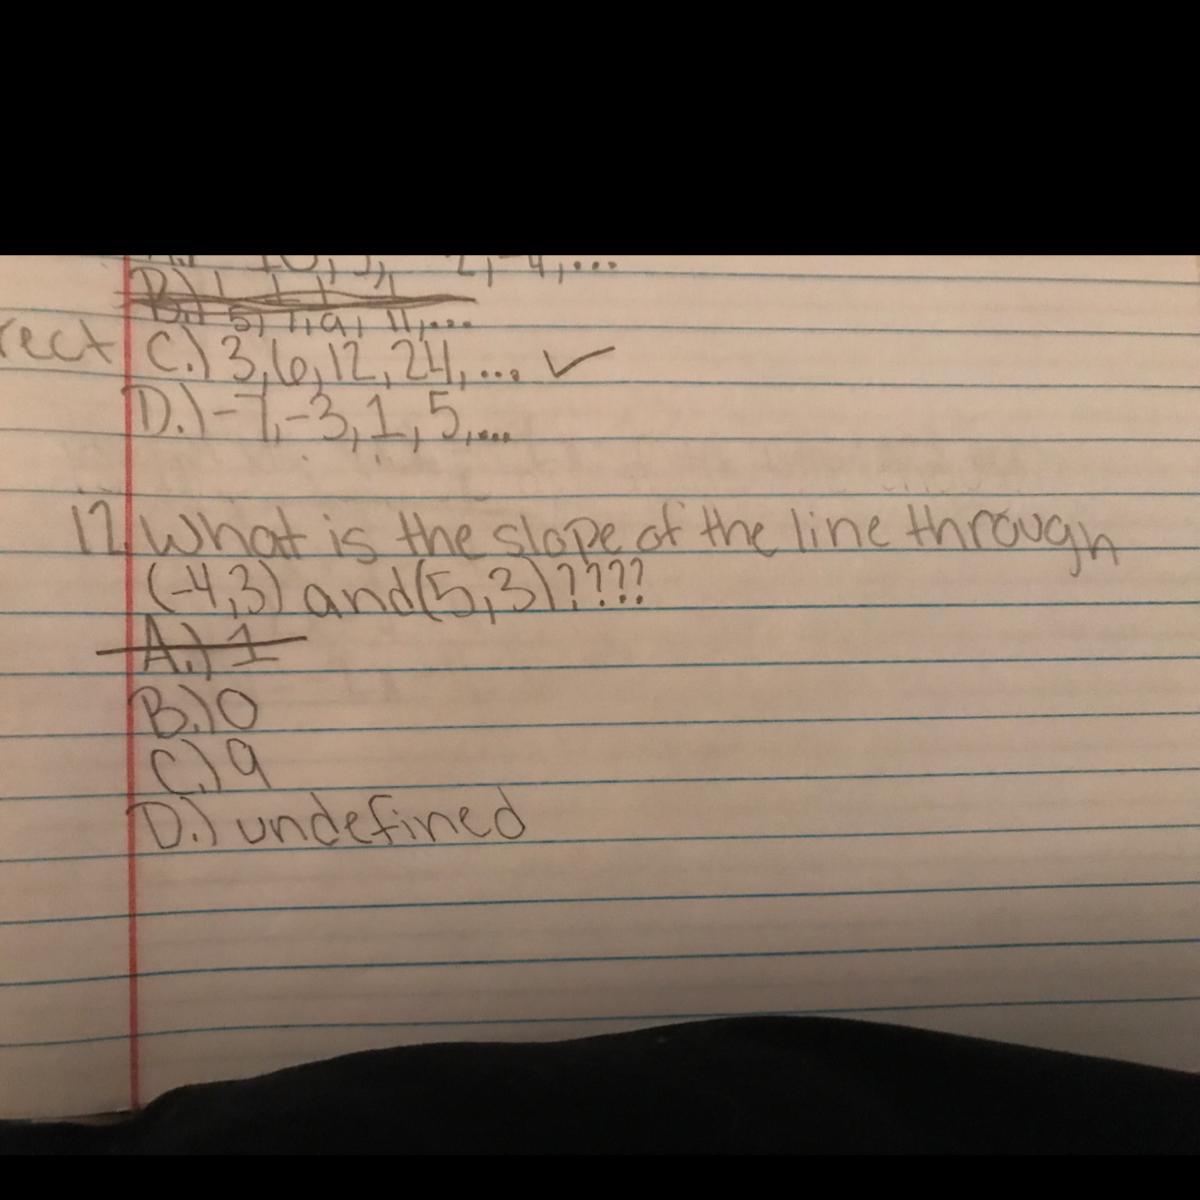 10, 5, -2, -4, ...
B.) 5, 7, 9, 11, ...
rect C.) 3, 6, 12, 24, ... ✓
D.) -7, -3, 1, 5, ...
12 What is the slope of the line through
(-4,3) and (5,3)????
A.) 1
B.) 0
C.) 9
D.) undefined